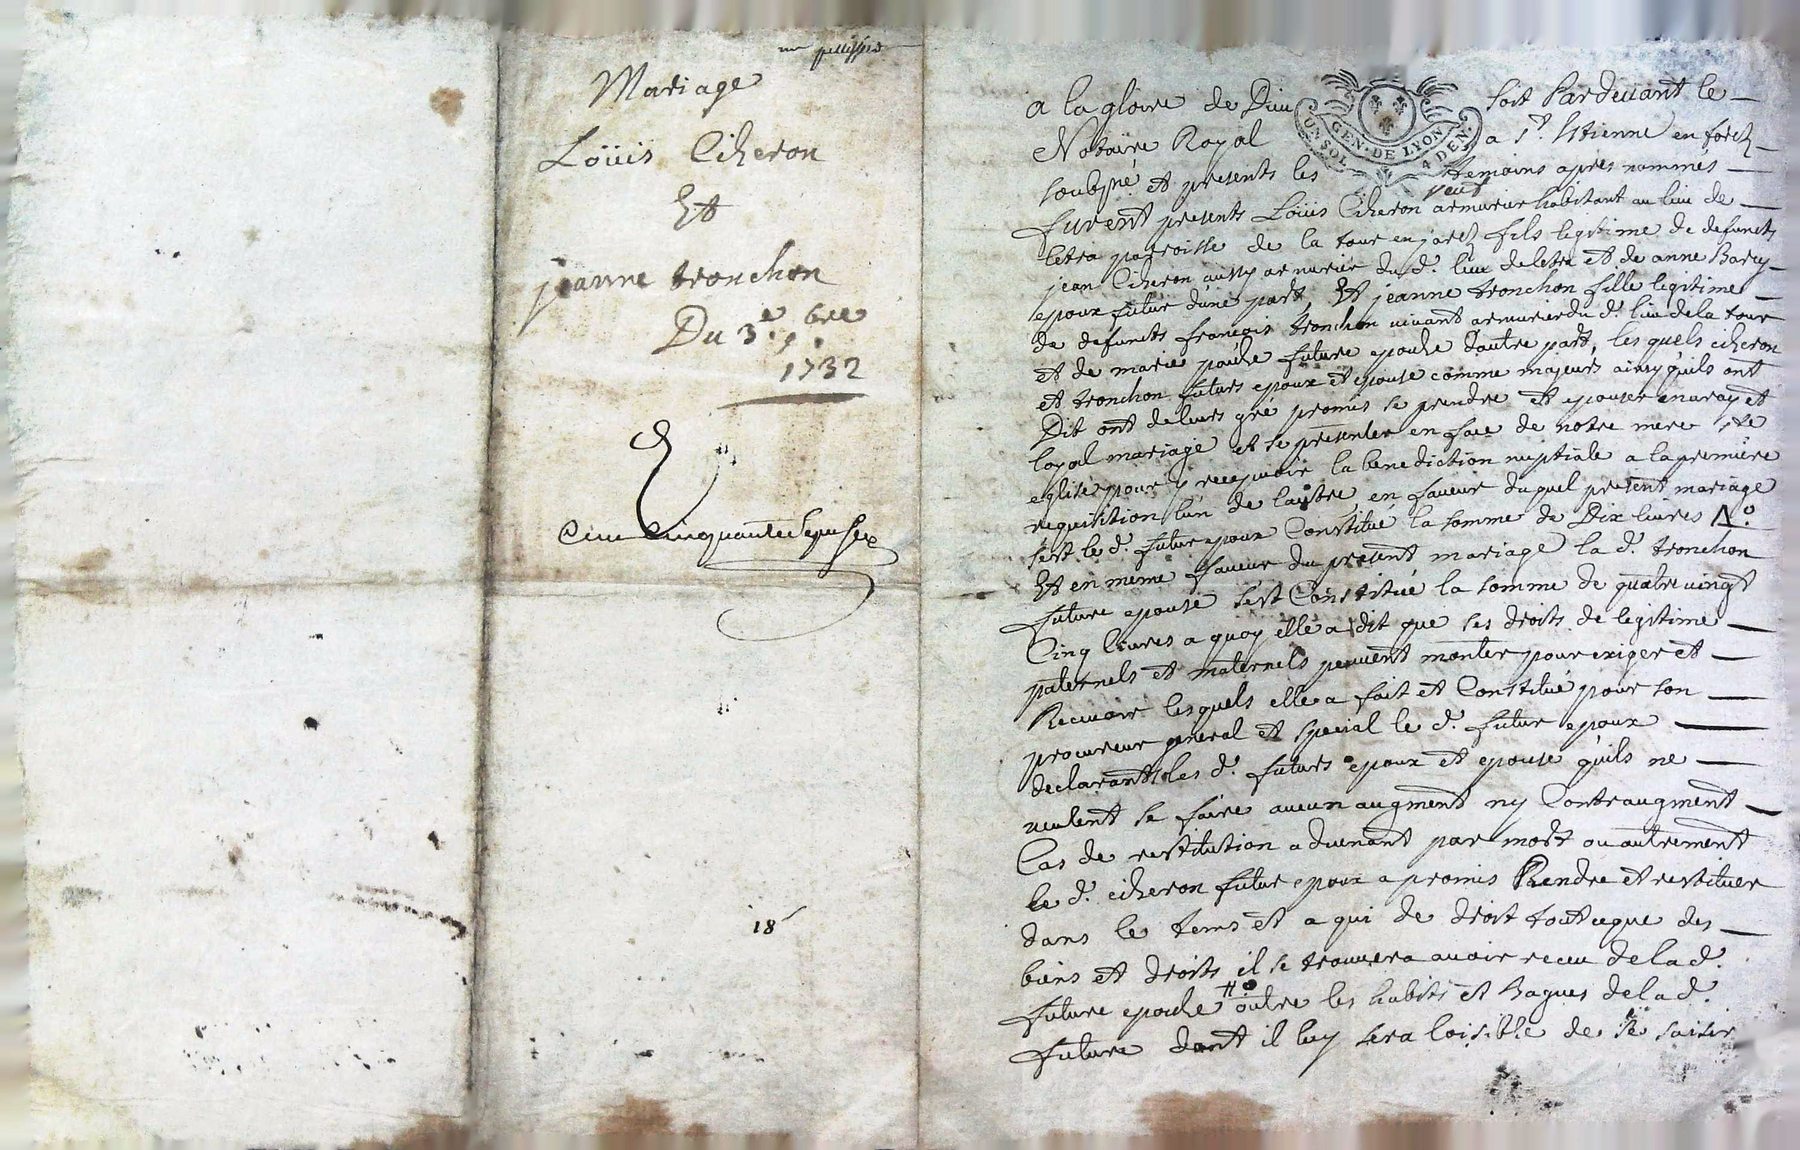 Mariage
Loüis Ciheron
Et
jeanne tronchon
Du 3.e 9.bre
1732
Cent Cinquante
18
a la gloire de Dieu soit Pardevant le
Notaire Royal a St. Etienne en forez
soubsné et presents les temoins apres nommés
GEN. DE LYON
UN SOL 4 DEN.
veuf
furent presents Loüis Ciheron armurier habitant au lieu de
letra parroisse de la tour en jarez fils legitime de defuncts
jean Ciheron aussy armurier du d. lieu de letra et de anne Barey
epoux futur dune part, Et jeanne tronchon fille legitime
de defuncts françois tronchon vivant armurier du d. lieu de la tour
et de marie future epouse dautre part, les quels ciheron
et tronchon futurs epoux et epouse comme majeurs ainsy quils ont
Dit ont de leurs gré promis se prendre et epouser en vray et
loyal mariage et se presenter en face de notre mere ste
eglise pour y recepvoir la benediction nuptiale a la premiere
requisition lun de lautre en faveur duquel present mariage
sest le d. futur epoux Constitué la somme de Dix livres
Et en meme faveur du present mariage la d. tronchon
future epouse sest Constitué la somme de quatre vingt
Cinq livres a quoy elle a dit que ses droits de legitime
paternels et maternels peuvent monter pour exiger et
Recevoir lesquels elle a fait et Constitué pour son
procureur general et special le d. futur epoux
declarants les d. futurs epoux et epouse quils ne
veulent se faire aucun augment ny Contraugment
Cas de restitution advenant par mort ou autrement
le d. ciheron futur epoux a promis Rendre et restituer
dans le tems et a qui de droit tout ce que des
biens et droits il se trouvera avoir receu de la d.
future epouse outre les habits et Bagues de la d.
future dont il luy sera loisible de se saisir